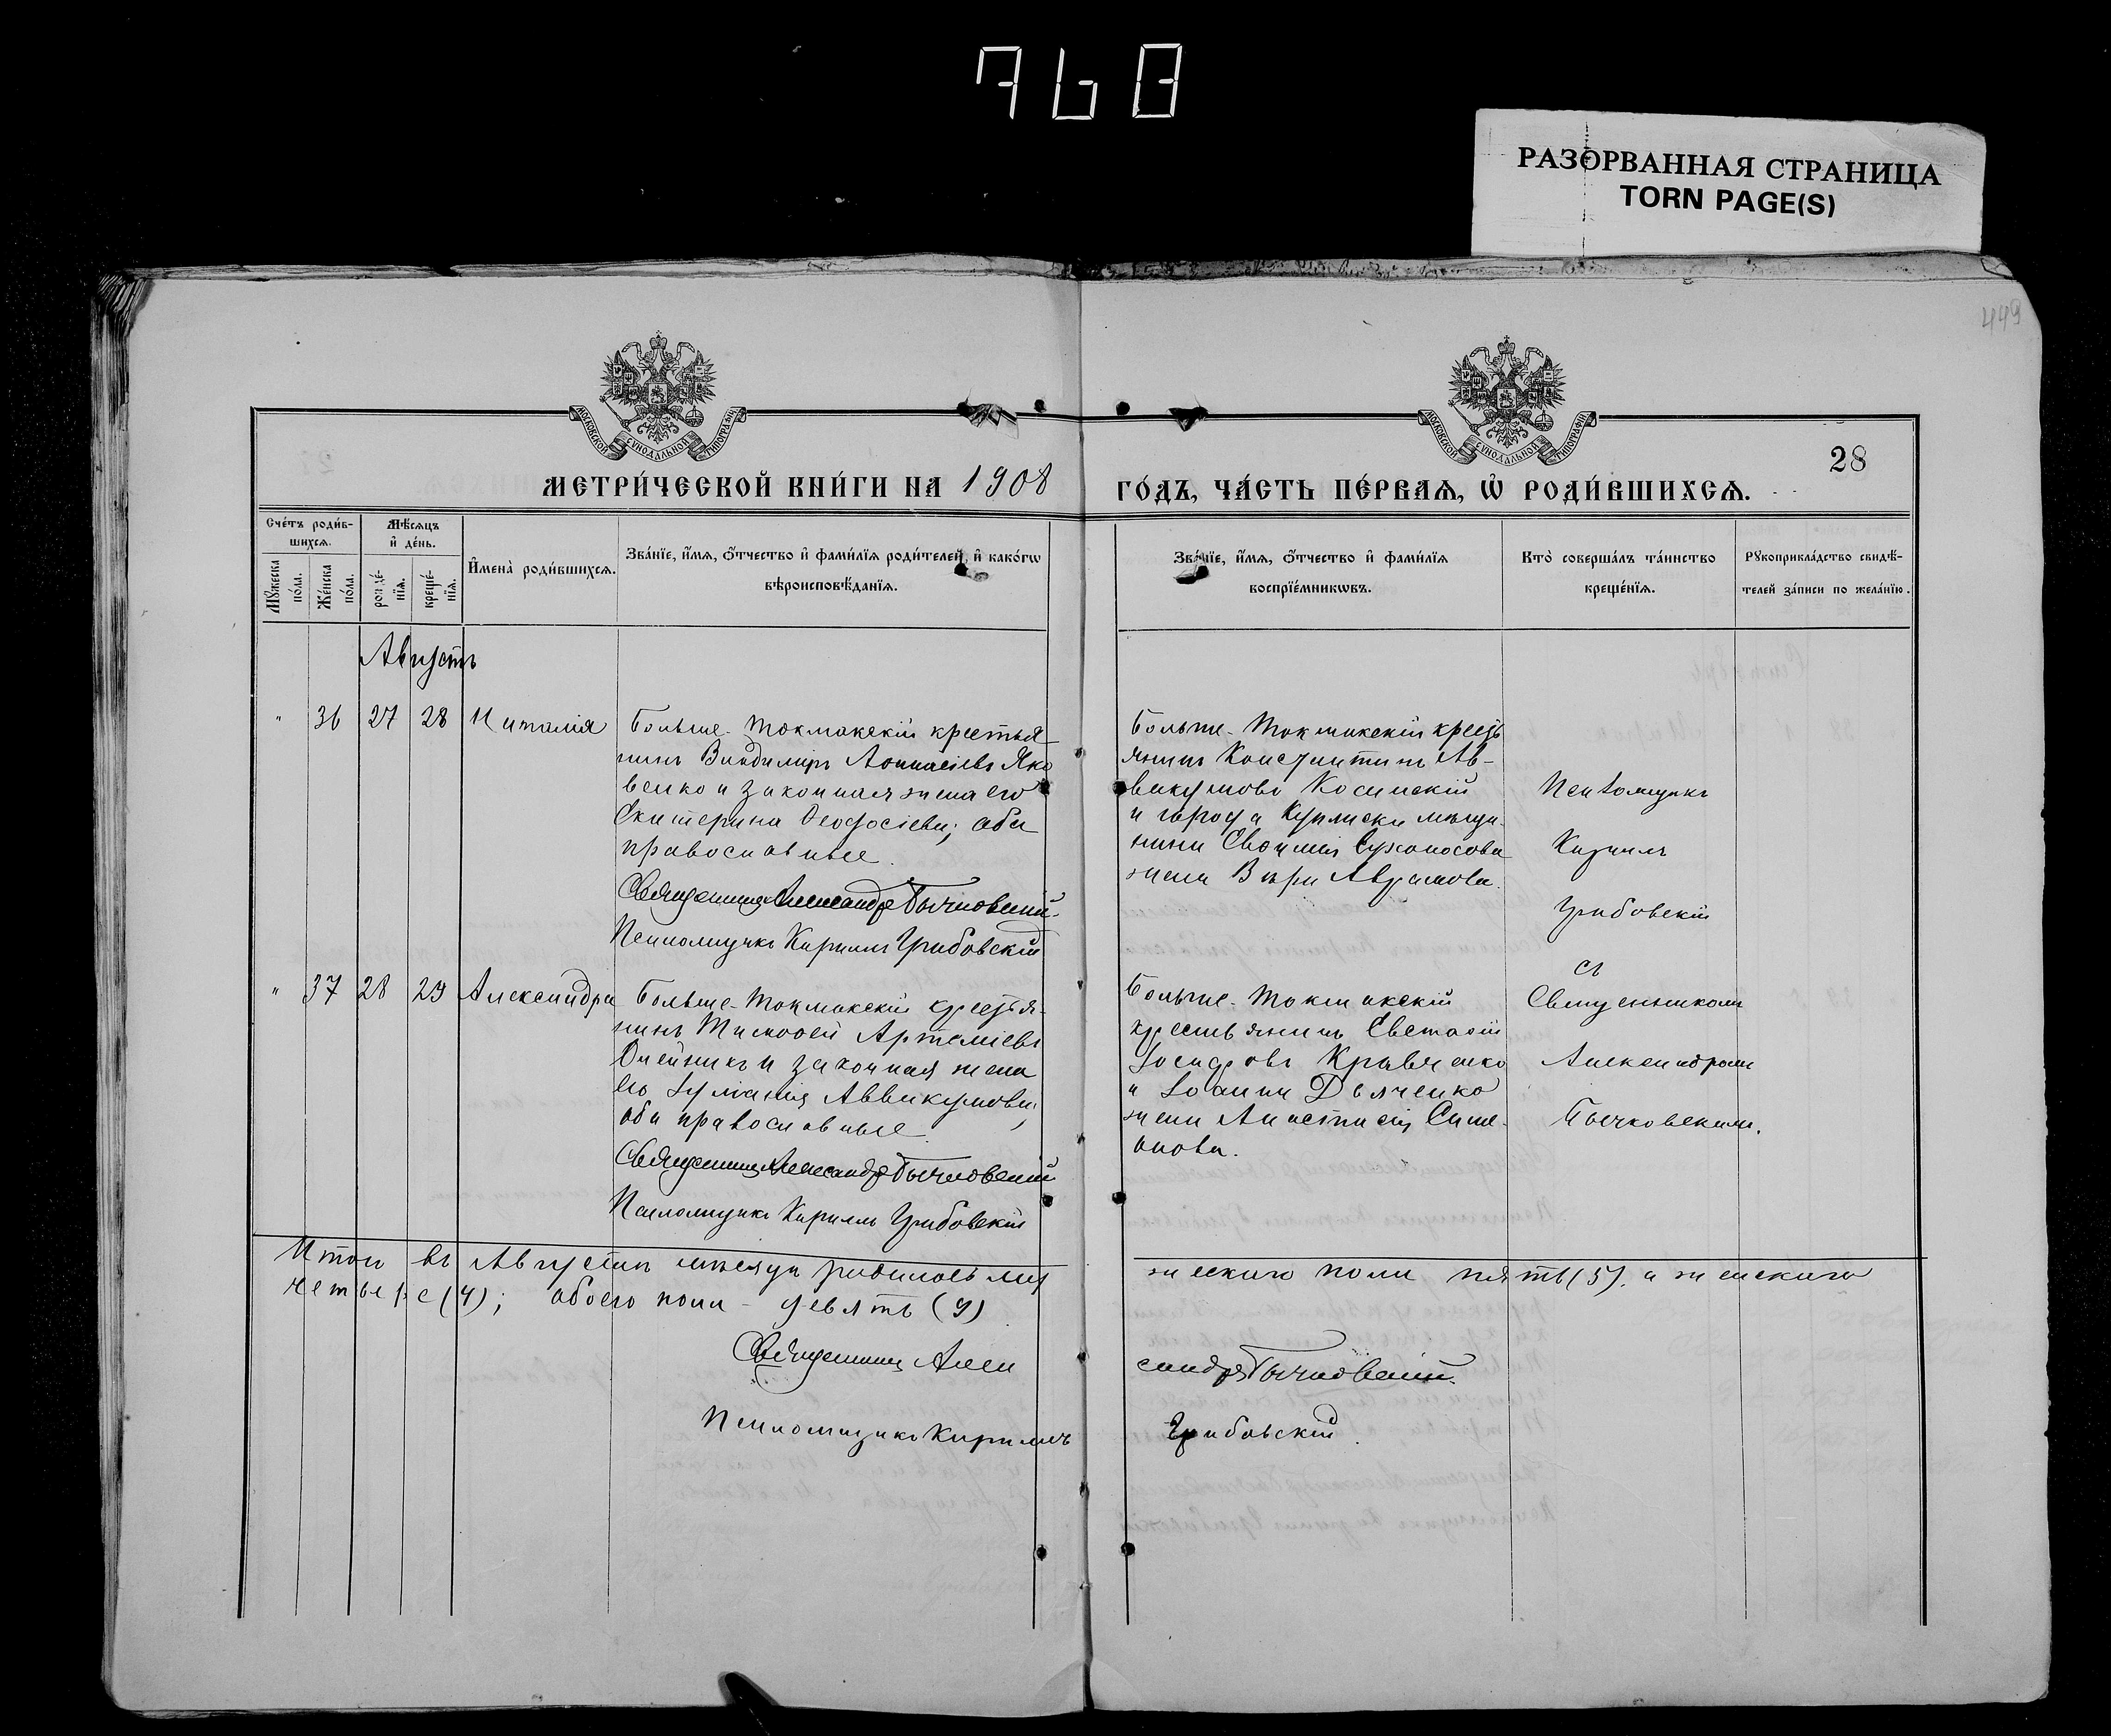 768
РАЗОРВАННАЯ СТРАНИЦА
TORN PAGE(S)
449
МОСКОВСКОЙ СУНОДАЛЬНОЙ ТИПОГРАФІИ
МОСКОВСКОЙ СУНОДАЛЬНОЙ ТИПОГРАФІИ
28
МЕТРИ́ЧЕСКОЙ КНИ́ГИ НА 1908
ГО́ДЪ, ЧА́СТЬ ПЕ́РВАѦ, Ѡ҆ РОДИ́ВШИХСѦ.
Сче́тъ роди́в-
шихсѧ.
Мѣ́сѧцъ
и҆ де́нь.
Мꙋ́жеска
по́ла.
Же́нска
по́ла.
рожде́-
нїѧ.
креще́-
нїѧ.
И҆мена̀ роди́вшихсѧ.
Зва́нїе, и҆́мѧ, ѻ҆́тчество и҆ фами́лїѧ роди́телей, и҆ како́гѡ
вѣроисповѣ́данїѧ.
Зва́нїе, и҆́мѧ, ѻ҆́тчество и҆ фами́лїѧ
воспрїе́мникѡвъ.
Кто̀ соверша́лъ та́инство
креще́нїѧ.
Рꙋкоприкла́дство свидѣ́-
телей за́писи по жела́нїю.
Августъ
" 36 27 28 Наталія
Больше-Токмакскій крестья
нинъ Владимиръ Аѳанасіевъ Яко
венко и законная жена его
Екатерина Ѳеодосіева; оба
православные.
Священникъ Александръ Бычковскій.
Псаломщикъ Кириллъ Грибовскій
Больше-Токмакскій кресть
янинъ Константинъ Ав-
вакумовъ Косинскій
и города мѣща-
нина жена Вѣра Аврамова.
Псаломщикъ
Кириллъ
Грибовскій
" 37 28 29 Александра
Больше-Токмакскій крестья-
нинъ Тимоѳей Артеміевъ
Олейникъ и законная жена
его Іуліанія Аввакумова;
оба православные.
Священникъ Александръ Бычковскій
Псаломщикъ Кириллъ Грибовскій
Больше-Токмакскій
крестьянинъ Евстаѳій
Іосифовъ Кравченко
и Іоанна Дьяченко
жена Анастасія Симе-
онова.
съ
Священникомъ
Александромъ
Бычковскимъ.
Итого въ Августѣ мѣсяцѣ родилось муж
жескаго пола пять (5), а женскаго
четыре (4); обоего пола - девять (9)
Священникъ Алек
сандръ Бычковскій.
Псаломщикъ Кириллъ
Грибовскій.